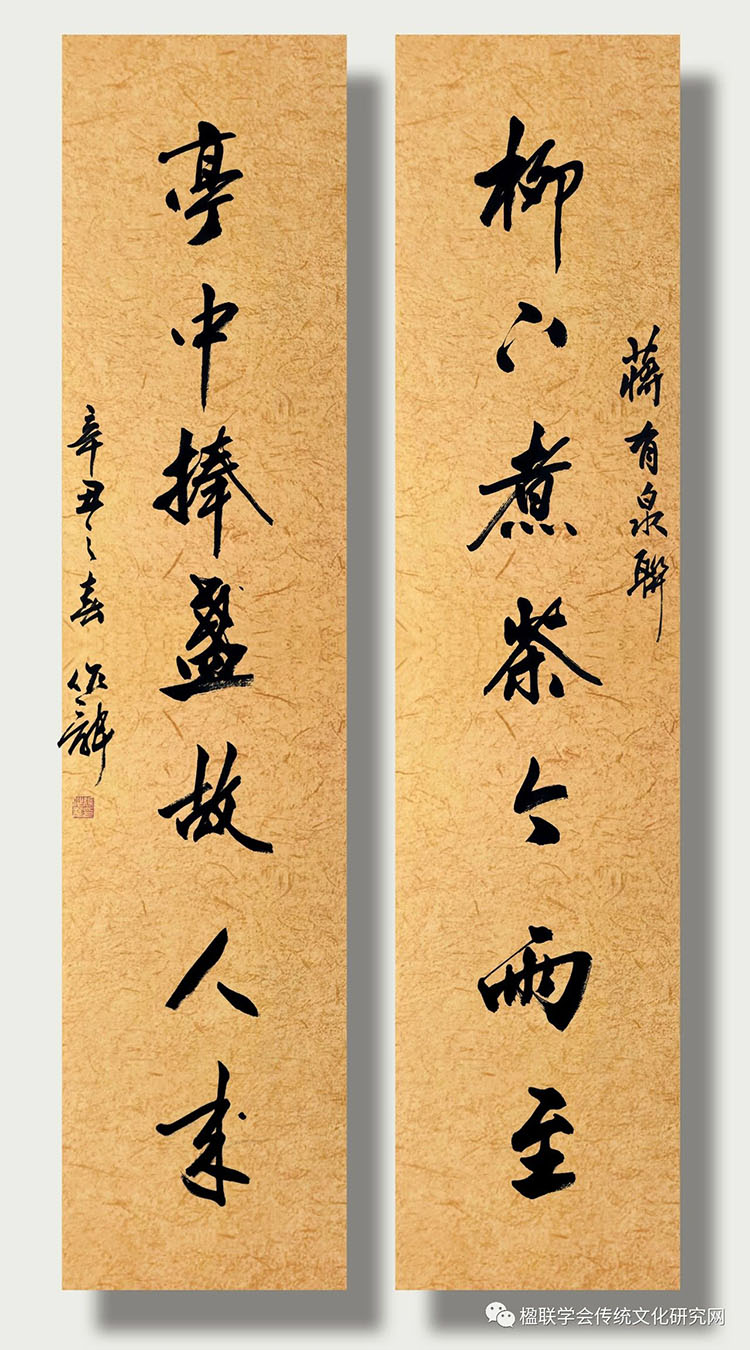 蔣有泉聯
柳下煮茶今雨至
亭中捧盞故人来
辛丑之春
楹联学会传统文化研究网